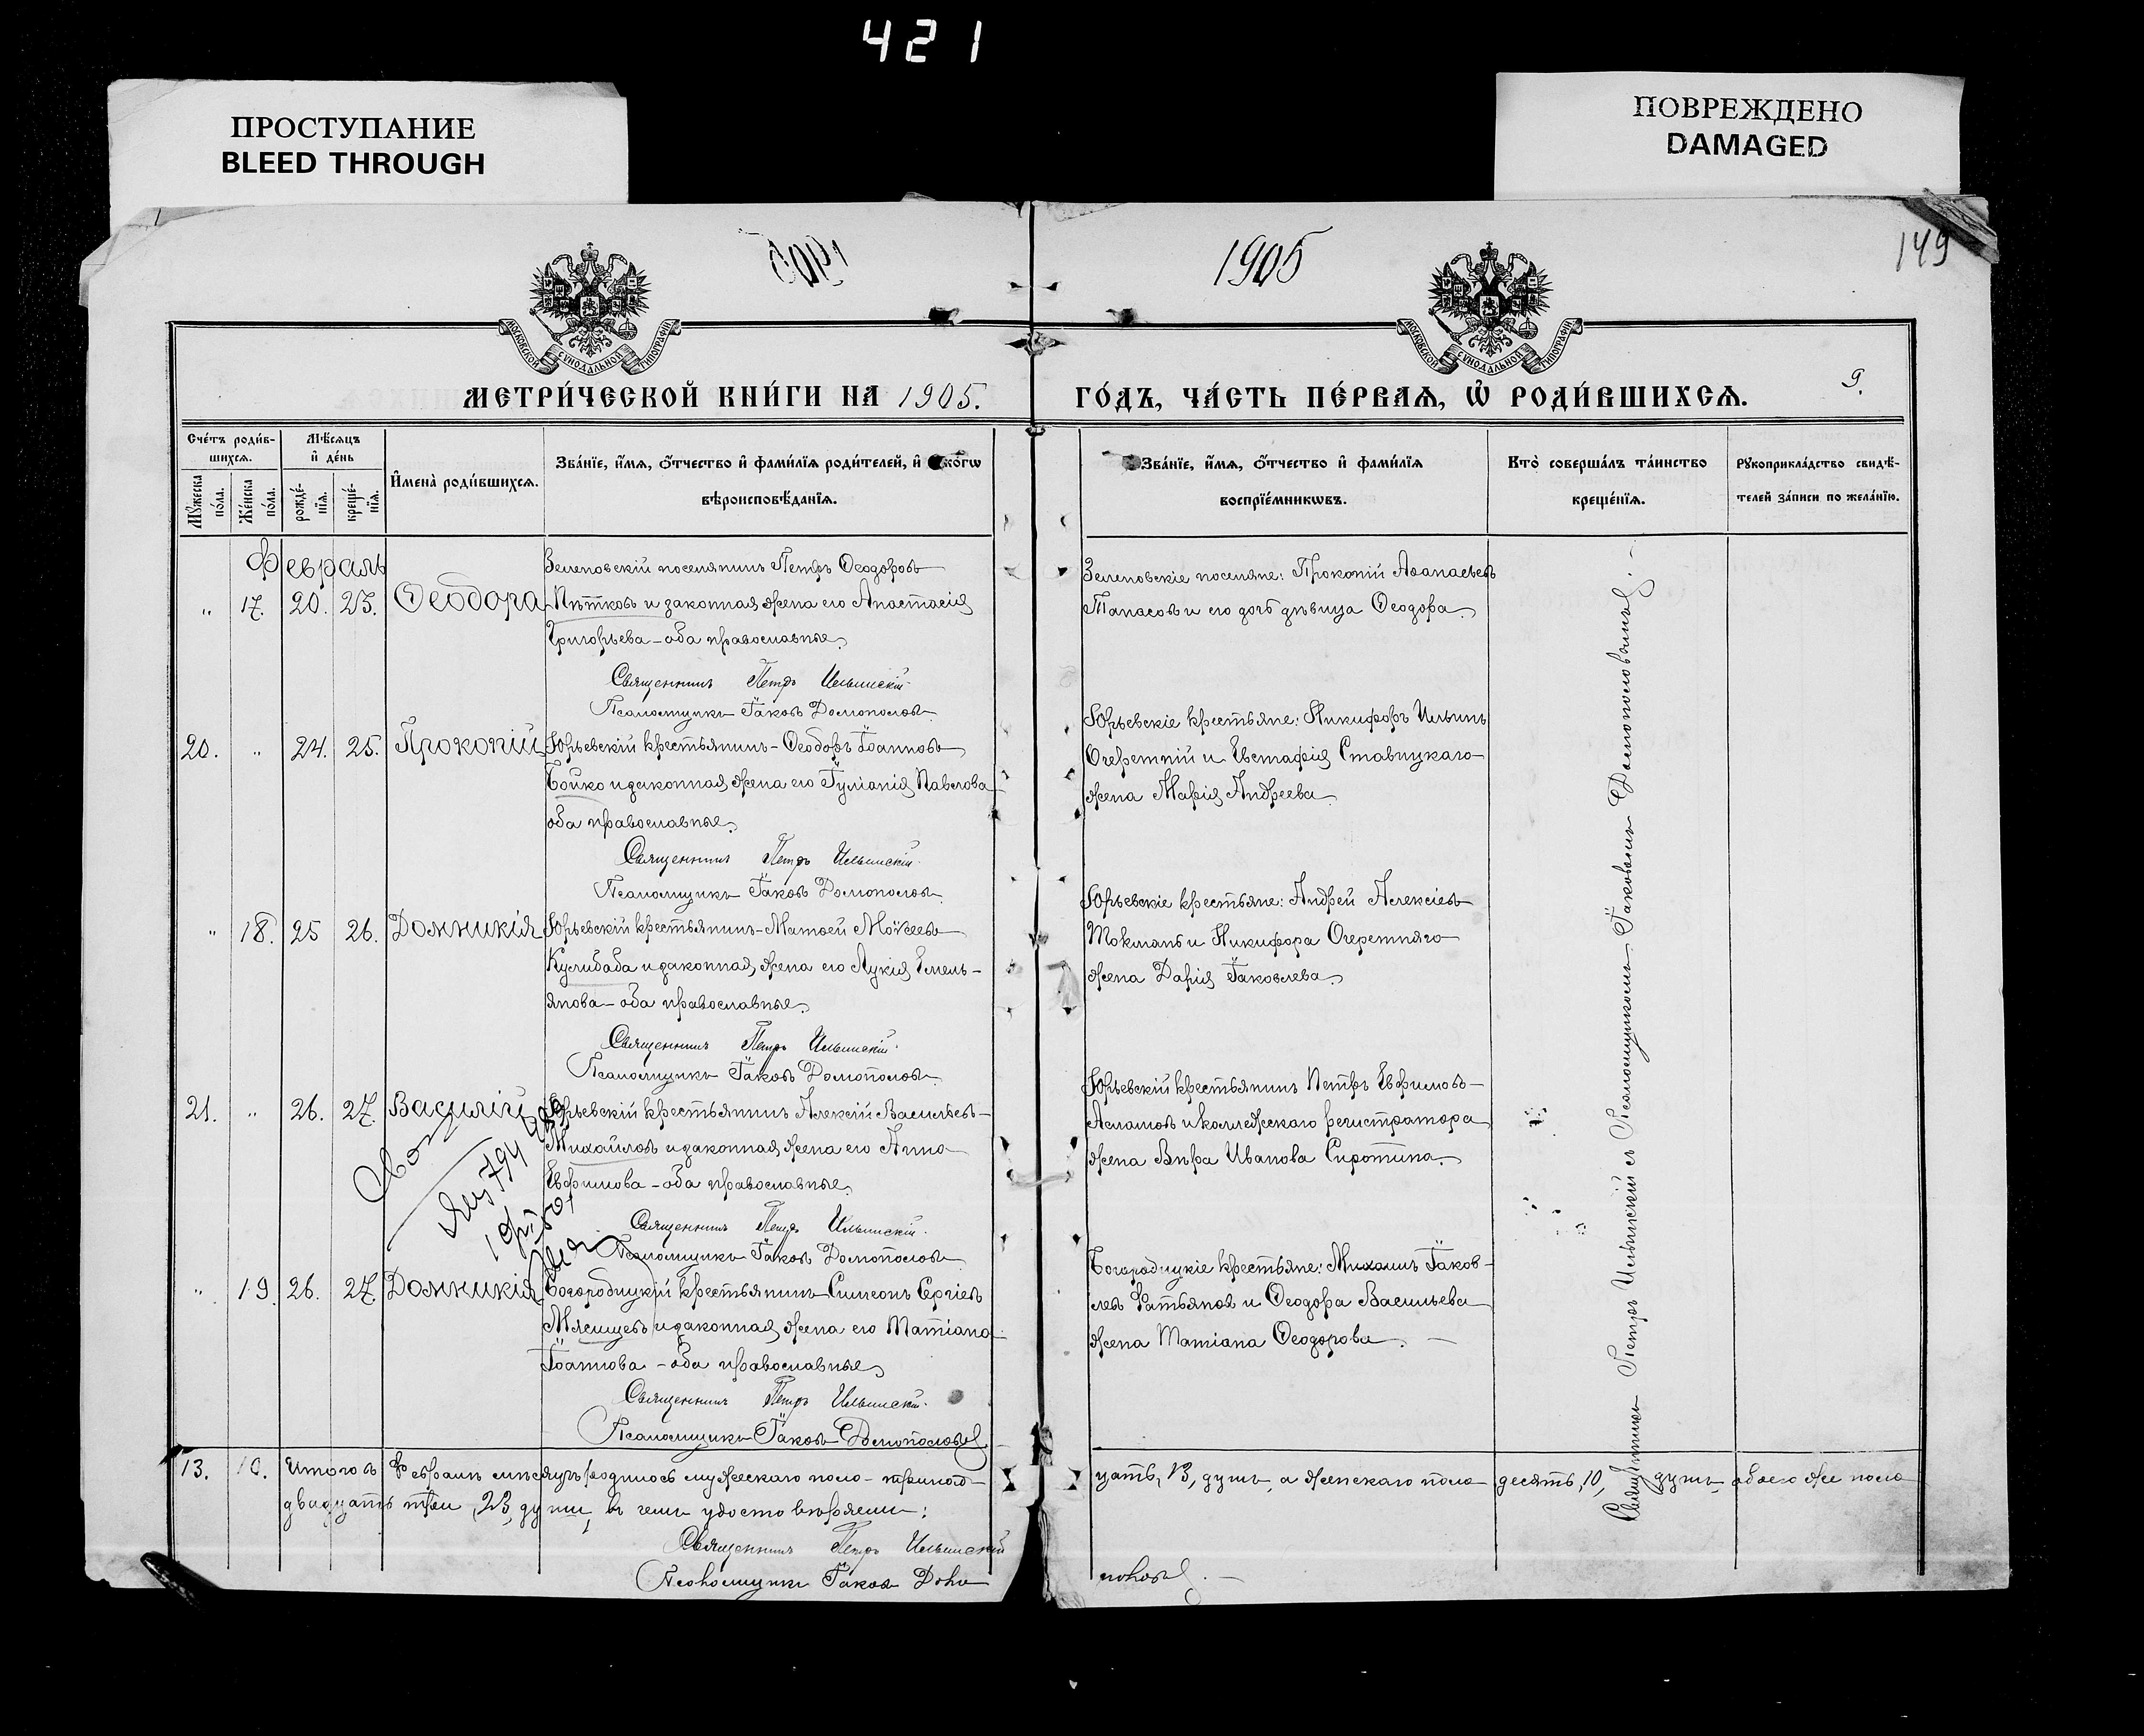 421
ПРОСТУПАНИЕ
BLEED THROUGH
ПОВРЕЖДЕНО
DAMAGED
149
1905
МОСКОВСКОЙ СУНОДАЛЬНОЙ ТИПОГРАФІИ
МОСКОВСКОЙ СУНОДАЛЬНОЙ ТИПОГРАФІИ
МЕТРИ́ЧЕСКОЙ КНИ́ГИ НА 1905.
ГО́ДЪ, ЧА́СТЬ ПЕ́РВАѦ, Ѡ҆ РОДИ́ВШИХСѦ.
9.
Сче́тъ роди́вшихсѧ.
Мѣ́сѧцъ и҆ де́нь
Мꙋ́жеска по́ла.
Же́нска по́ла.
рожде́нїѧ.
креще́нїѧ.
И҆мена̀ роди́вшихсѧ.
Зва́нїе, и҆́мѧ, ѻ҆́тчество и҆ фами́лїѧ роди́телей, и҆ ко́гѡ
вѣроисповѣ́данїѧ.
Зва́нїе, и҆́мѧ, ѻ҆́тчество и҆ фами́лїѧ
воспрїе́мникѡвъ.
Кто̀ соверша́лъ та́инство
креще́нїѧ.
Рꙋкоприкла́дство свидѣ́телей за́писи по жела́нїю.
Февраль
„ 17. 20. 25. Ѳеодора
Зеленовскій поселянинъ Петръ Ѳеодоровъ
Пѣтковъ и законная жена его Анастасія
Григорьева – оба православные.
Священникъ Петръ Ильинскій.
Псаломщикъ Іаковъ Домополовъ
Зеленовскіе поселяне: Прокопій Аѳанасьевъ
Танасовъ и его дочь дѣвица Ѳеодора.
20. „ 24. 25. Прокопій
Юрьевскій крестьянинъ – Ѳеодоръ Іоанновъ
Бойко и законная жена его Іуліанія Павлова
оба православные.
Священникъ Петръ Ильинскій.
Псаломщикъ Іаковъ Домополовъ
Юрьевскіе крестьяне: Никифоръ Ильинъ
Очеретній и Евстафія Ставицкаго
жена Марія Андреева.
„ 18. 25 26. Домникія
Юрьевскій крестьянинъ – Матѳей Моѵсеевъ
Кулибаба и законная жена его Лукія Емель-
янова – оба православные.
Священникъ Петръ Ильинскій.
Псаломщикъ Іаковъ Домополовъ
Юрьевскіе крестьяне: Андрей Алексіевъ
Токмань и Никифора Очеретняго
жена Дарія Іаковлева.
21. „ 26. 27. Василій
Юрьевскій крестьянинъ Алексій Васильевъ –
Михайловъ и законная жена его Анна
Евфимова – оба православные.
Священникъ Петръ Ильинскій.
Псаломщикъ Іаковъ Домополовъ
Юрьевскій крестьянинъ Петръ Евфимовъ –
Асламовъ и коллежскаго регистратора
жена Вѣра Иванова Сиротина.
„ 19. 26. 27. Домникія
Богородицкій крестьянинъ Симеонъ Сергіевъ
Мясищевъ и законная жена его Татіана
Іоаннова – оба православные.
Священникъ Петръ Ильинскій.
Псаломщикъ Іаковъ Домополовъ
Богородицкіе крестьяне: Михаилъ Іаков-
левъ Фатьяновъ и Ѳеодора Васильева
жена Татіана Ѳеодорова.
Священникъ Петръ Ильинскій съ Псаломщикомъ Іаковомъ Домополовымъ.
13. 10. Итого въ Февралѣ мѣсяцѣ родилось мужескаго пола – тринад-
цать, 13, душъ, а женскаго пола десять, 10, душъ, обоего же пола
двадцать три, 23, души, въ чемъ удостовѣряемъ:
Священникъ Петръ Ильинскій
Псаломщикъ Іаковъ Домо
половъ.